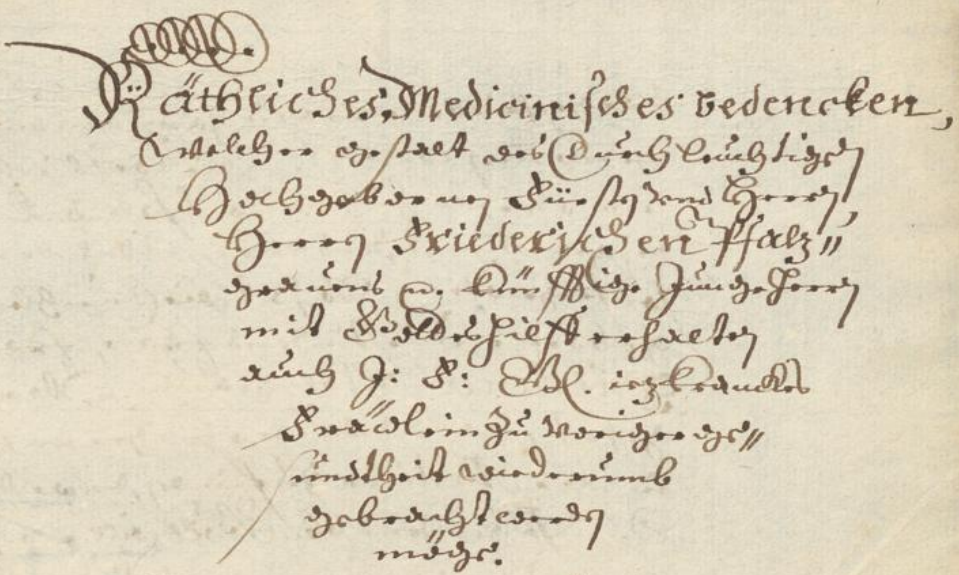 Räthliches Medicinisches bedencken,
Welcher gestalt des Durchleuchtigen
Hochgebornen Fürsten vnd Herren,
Herren Friederichen Pfaltz„
gravens künfftige Junge Herren
mit Gottes hilff erhalten
auch J: F: Gl. ietz kranckes
Fräwlein zu voriger ge„
sundtheit wiederumb
gebracht werden
möge.